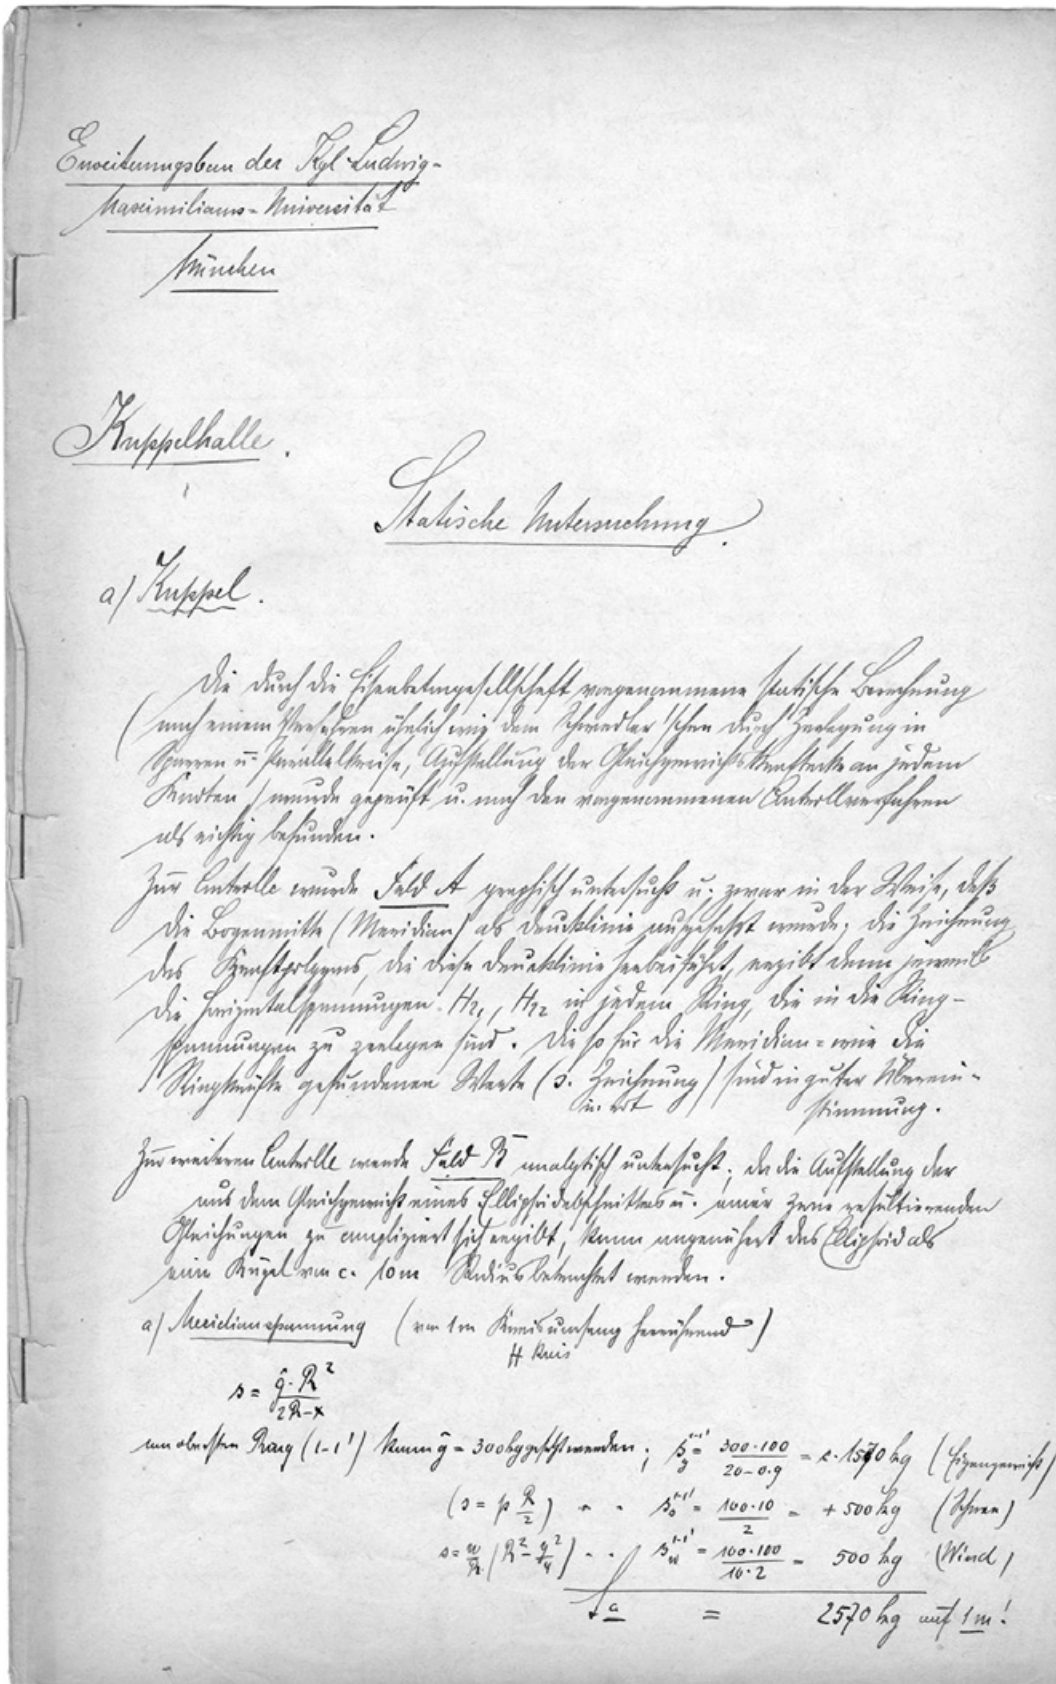 Erweiterungsbau der Kgl. Ludwig-
Maximilians-Universität
München
Kuppelhalle.
Statische Untersuchung.
a) Kuppel.
Die durch die Eisenbetongesellschaft vorgenommene statische Berechnung
(nach einem Verfahren ähnlich wie dem Schwedler'schen durch Zerlegung in
Sparren u. Parallelkreise, Aufstellung der Gleichgewichtskraftecke an jedem
Knoten) wurde geprüft u. nach den vorgenommenen Controllverfahren
als richtig befunden.
Zur Controlle wurde Feld A graphisch untersucht u. zwar in der Weise, daß
die Bogenmitte (Meridian) als Drucklinie aufgefaßt wurde; die Zeichnung
des Kraftpolygons, die diese Drucklinie herbeiführt, ergibt dann jeweils
die Horizontalspannungen H₂₁, H₂₂ in jedem Ring, die in die Ring-
spannungen zu zerlegen sind. Die so für die Meridian= wie die
Ringkräfte gefundenen Werte (s. Zeichnung) sind in guter Überein-
in rot
stimmung.
Zur weiteren Controlle wurde Feld B analytisch untersucht; da die Aufstellung der
aus dem Gleichgewicht eines Ellipsoidabschnittes u. einer Zone resultierenden
Gleichungen zu compliziert sich ergibt, kann angenähert das Ellipsoid als
eine Kugel von c. 10 m Radius betrachtet werden.
a) Meridianspannung (von 1 m Kreisumfang herrührend)
kreis
s = g·R² / 2R-x
am obersten Ring (1-1') kann g = 300 kg gesetzt werden; s_g^{1-1'} = 300·100 / 20-0.9 = c. 1570 kg (Eigengewicht)
(s = p R/2) " " s_s^{1-1'} = 100·10 / 2 = + 500 kg (Schnee)
s = w/R (R² - y²/4) " " s_w^{1-1'} = 100·100 / 10·2 = 500 kg (Wind)
= 2570 kg auf 1 m!